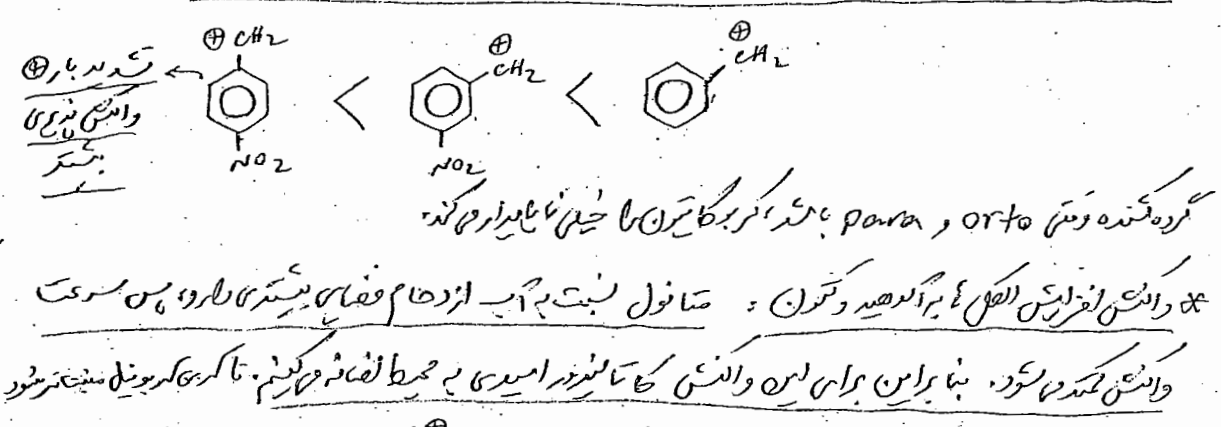 ⊕ CH2 < ⊕ CH2 < ⊕ CH2
تشدید بار ⊕
واکنش پذیری
بیشتر
NO2 NO2
گروه کشنده وقتی orto و para باشد، کربوکاتیون را خیلی ناپایدار می‌کند.
* واکنش افزایش الکل ها به آلدهید و کتون : متانول نسبت به آب ازدحام فضایی بیشتری دارد، پس سرعت
واکنش کمتر می شود. بنابراین برای این واکنش کاتالیزور اسیدی به محیط اضافه می کنیم. تا کربن کربونیل مثبت تر شود
⊕